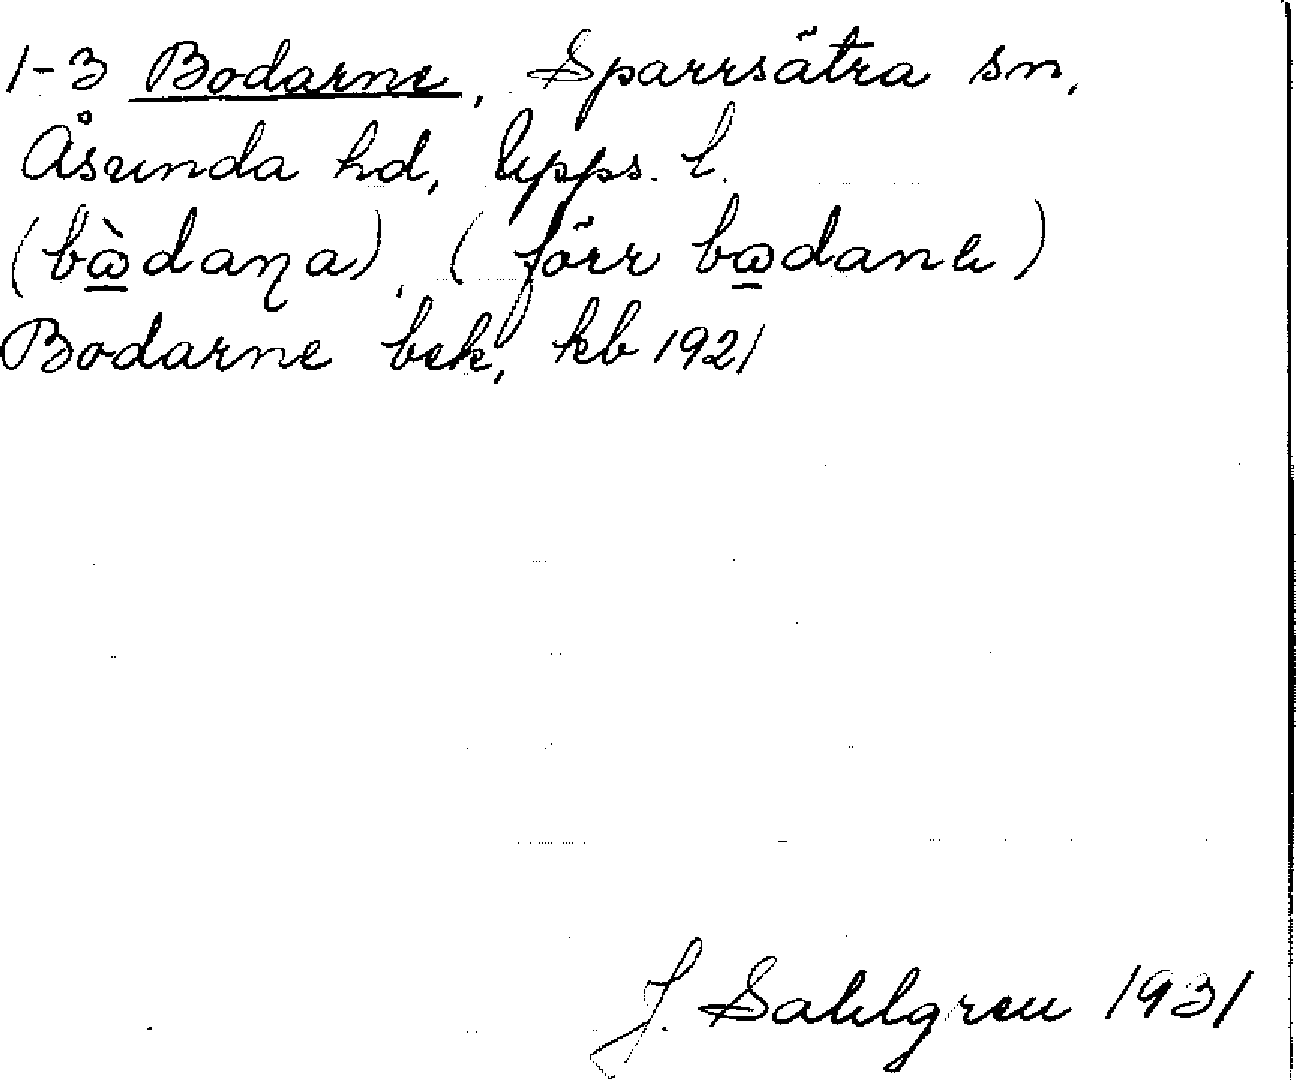 1-3 Bodarne, Sparrsätra sn,
Åsunda hd, Upps. l.
(bꞷ̀daɳa), (förr bꞷdanɐ)
Bodarne bek, kb 1921
J. Sahlgren 1931